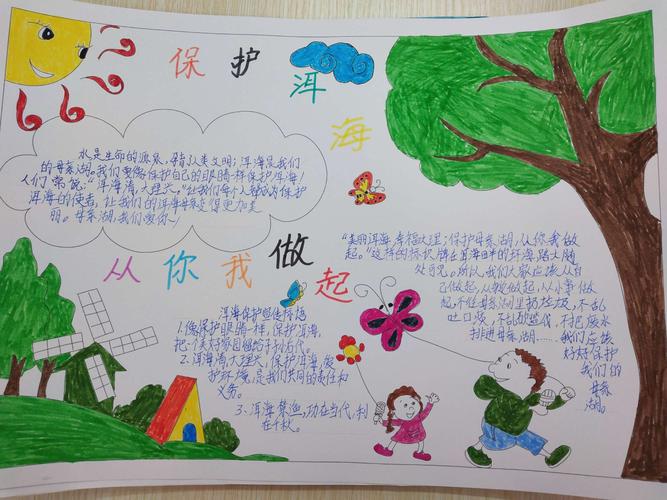 保护洱海
水是生命的源泉，孕育人类文明；洱海是我们
的母亲湖。我们要像保护自己的眼睛一样保护洱海！
人们常说："洱海清，大理兴。"让我们每个人都成为保护
洱海的使者，让我们的洱海母亲变得更加美
丽。母亲湖，我们爱你~
从你我做起
洱海保护宣传标语
1、像保护眼睛一样，保护洱海，
把一个美好家园留给子孙后代。
2、洱海清，大理兴，保护洱海，爱
护环境，是我们共同的责任和
义务。
3、洱海禁渔，功在当代，利
在千秋。
"美丽洱海，幸福大理；保护母亲湖，从你我做
起。"这样的标识牌在洱海田畔的环海路上随
处可见。所以，我们大家应该从自
己做起，从现做起，从小事做
起，不往母亲湖里扔垃圾，不乱
吐口痰，不乱砍乱伐，不把废水
排进母亲湖……我们应该
好好保护
我们的
母亲
湖。